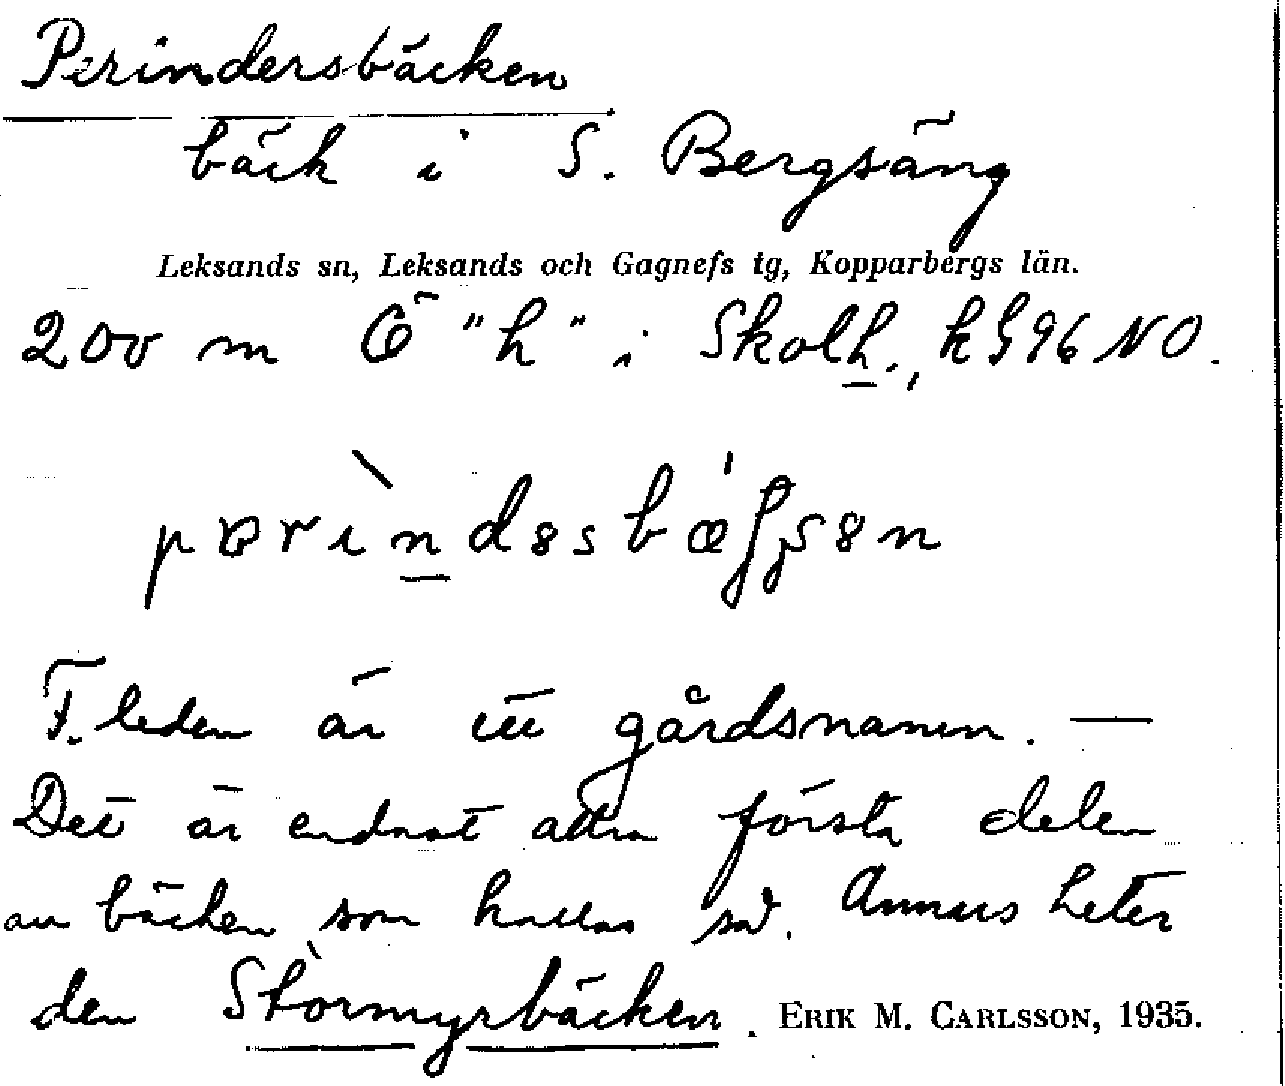 Perindersbäcken
bäck i S. Bergsäng
Leksands sn, Leksands och Gagnefs tg, Kopparbergs län.
200 m Ö "h" i Skolh.,
F. leden är ett gårdsnamn. —
Det är endast allra första delen
av bäcken som kallas så. Annars heter
den Stormyrbäcken. ERIK M. CARLSSON, 1935.